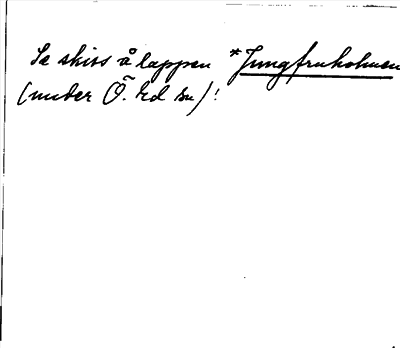 Se skiss å lappen *Jungfruholmen
(under Ö. Ed sn)!